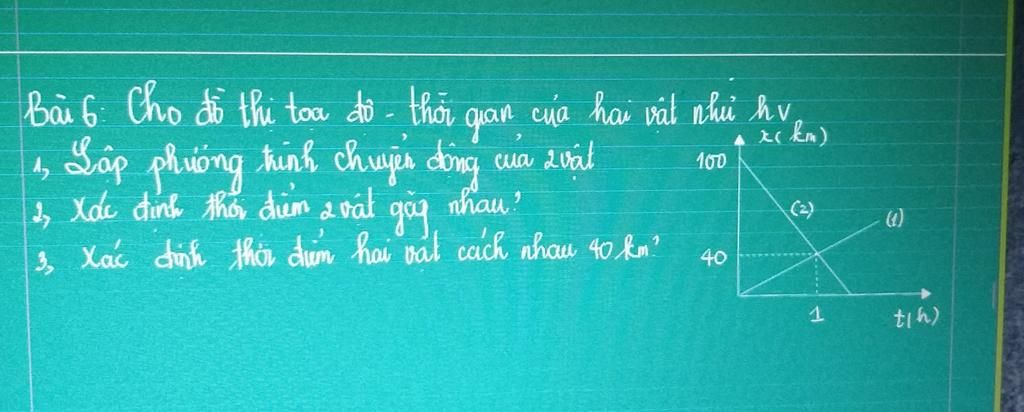 Bài 6: Cho đồ thị toạ độ - thời gian của hai vật như hv
1, Lập phương trình chuyển động của 2 vật
2, Xác định thời điểm 2 vật gặp nhau?
3, Xác định thời điểm hai vật cách nhau 40 km?
x( km)
100
(2)
(1)
40
1
t(h)